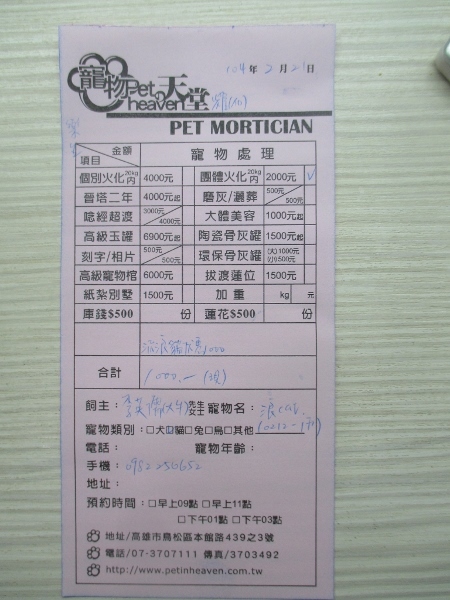 104年2月21日
寵物天堂
Pet heaven
PET MORTICIAN
金額 項目 寵物處理
個別火化20kg內 4000元 團體火化20kg內 2000元 ✓
晉塔二年 4000元起 磨灰/灑葬 500元/500元
唸經超渡 3000元/4000元 大體美容 1000元起
高級玉罐 6900元起 陶瓷骨灰罐 1500元起
刻字/相片 500元/500元 環保骨灰罐 (大)1000元 (小)500元
高級寵物棺 6000元 拔渡蓮位 1500元
紙紮別墅 1500元 加重 kg 元
庫錢$500 份 蓮花$500 份
1000
合計 1000.-(現)
飼主: 先生 女士 寵物名: 浪
寵物類別:□犬□貓□兔□鳥□其他
電話: 寵物年齡:
手機:0982 250652
地址:
預約時間:□早上09點□早上11點
□下午01點□下午03點
地址/高雄市鳥松區本館路439之3號
電話/07-3707111 傳真/3703492
http://www.petinheaven.com.tw